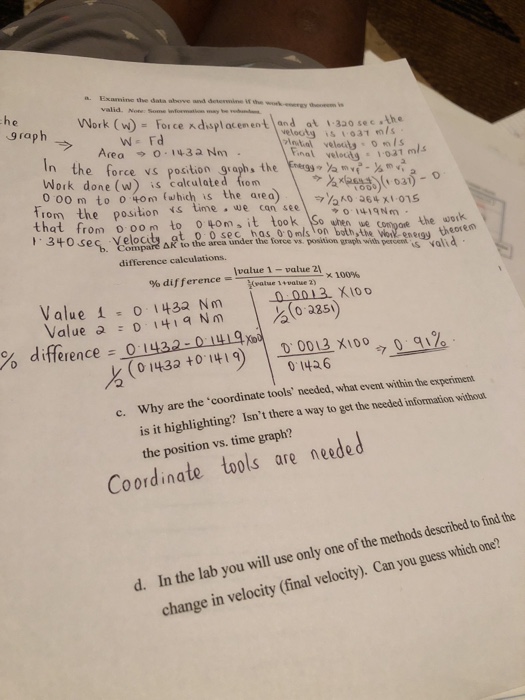 a. Examine the data above and determine if the work-energy theorem is
valid. Note: Some information may be redundant.
he
graph ⇒
Work (w) = Force x displacement
W = Fd
Area ⇒ 0.1432 Nm
In the force vs position graph, the
Work done (w) is calculated from
0.00 m to 0.40m (which is the area)
From the position vs time, we can see
that from 0.00 m to 0.40m, it took
1.340 sec. Velocity at 0.0 sec has 0.0 m/s
and at 1.320 sec, the
velocity is 1.037 m/s.
Initial velocity = 0 m/s
Final velocity = 1.037 m/s
Energy = ½ m v_f² - ½ m v_i²
⇒ ½ x (264.4/1000) (1.037)² - 0
⇒ ½ x 0.264 x 1.075
⇒ 0.1419 Nm.
So when we compare the work
on both, the Work-energy theorem
is valid.
b. Compare ΔK to the area under the force vs. position graph with percent
difference calculations.
% difference = |value 1 – value 2| / ½(value 1+value 2) × 100%
Value 1 = 0.1432 Nm
Value 2 = 0.1419 Nm
0.0013 X100
½ (0.2851)
% difference = 0.1432-0.1419 X100
½ (0.1432 + 0.1419)
0.0013 X100 ⇒ 0.91%
0.1426
c. Why are the 'coordinate tools' needed, what event within the experiment
is it highlighting? Isn't there a way to get the needed information without
the position vs. time graph?
Coordinate tools are needed
d. In the lab you will use only one of the methods described to find the
change in velocity (final velocity). Can you guess which one?